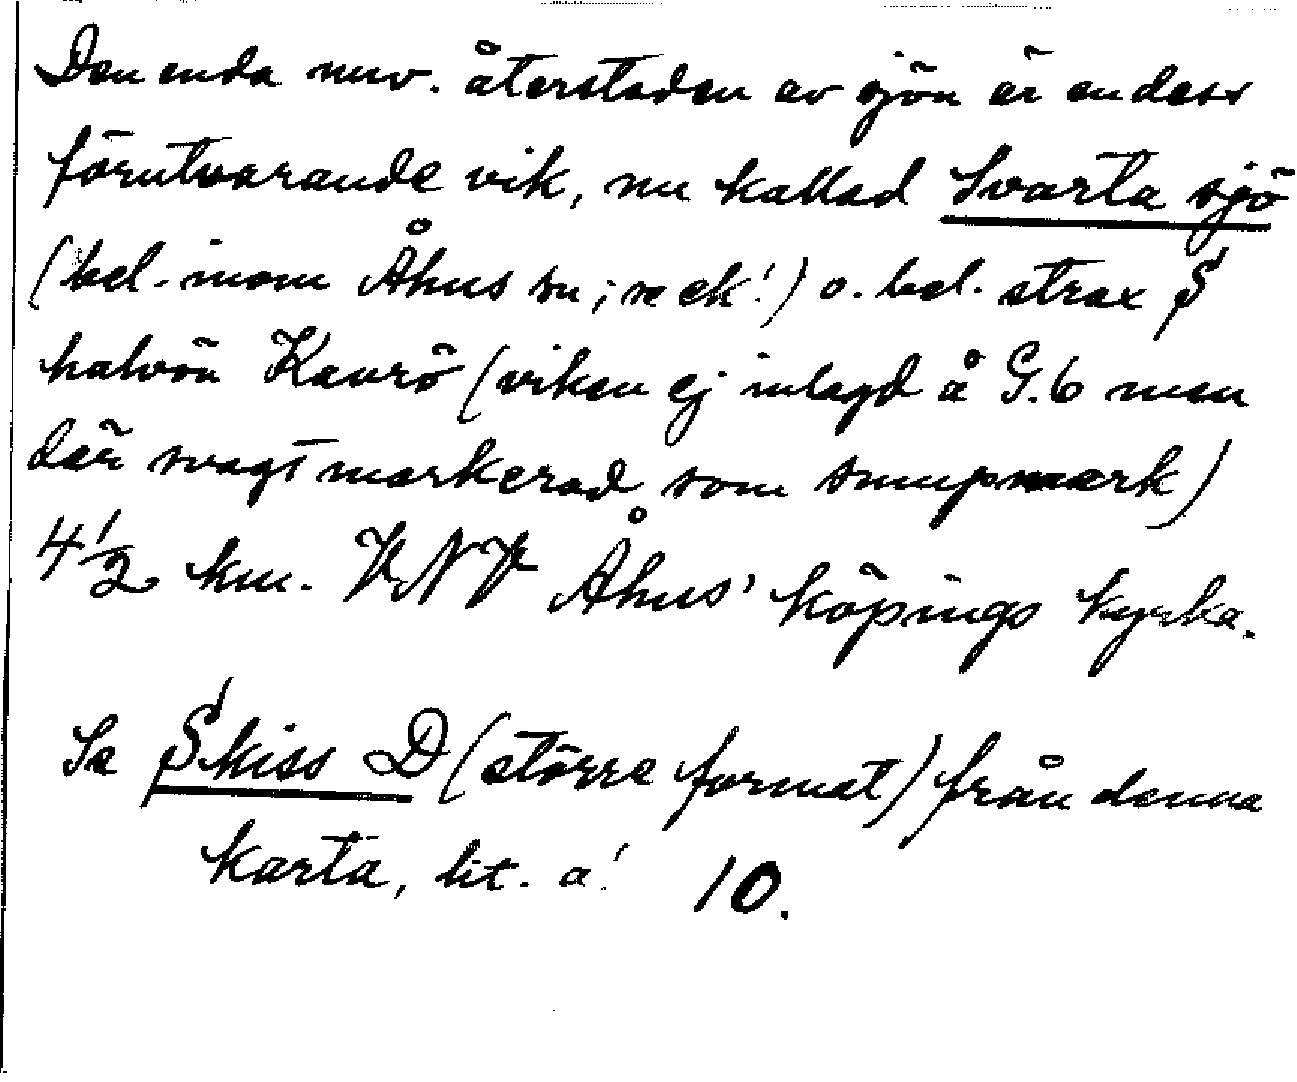 Den enda nuv. återstoden av sjön är en dess
förutvarande vik, nu kallad Svarta sjö
(bel. inom Åhus sn; se ek!) o. bel. strax S
halvön Kavrö (viken ej inlagd å G.6 men
där svagt markerad som sumpmark)
4 1/2 km. VNV Åhus' köpings kyrka.
Se Skiss D (större format) från denna
karta, lit. a! 10.